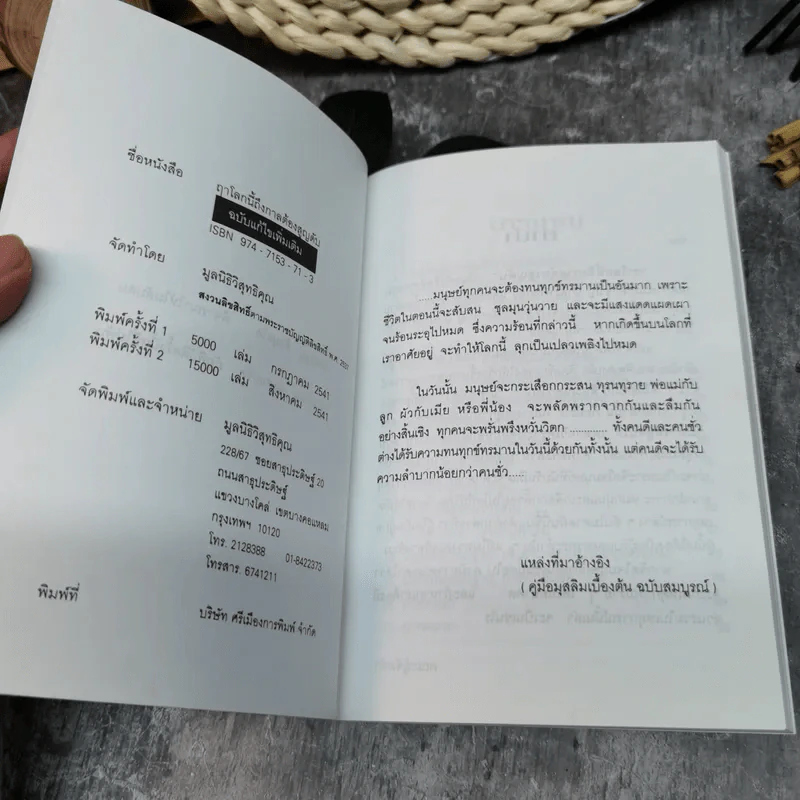 ชื่อหนังสือ ฤาโลกนี้ถึงกาลต้องสูญดับ
ฉบับแก้ไขเพิ่มเติม
ISBN 974-7153-71-3
จัดทำโดย มูลนิธิวิสุทธิคุณ
สงวนลิขสิทธิ์ตามพระราชบัญญัติลิขสิทธิ์ พ.ศ. 2537
พิมพ์ครั้งที่ 1 5000 เล่ม กรกฎาคม 2541
พิมพ์ครั้งที่ 2 15000 เล่ม สิงหาคม 2541
จัดพิมพ์และจำหน่าย มูลนิธิวิสุทธิคุณ
228/67 ซอยสาธุประดิษฐ์ 20
ถนนสาธุประดิษฐ์
แขวงบางโคล่ เขตบางคอแหลม
กรุงเทพฯ 10120
โทร. 2128388 01-8422373
โทรสาร. 6741211
พิมพ์ที่ บริษัท ศรีเมืองการพิมพ์ จำกัด
.....มนุษย์ทุกคนจะต้องทนทุกข์ทรมานเป็นอันมาก เพราะ
ชีวิตในตอนนี้จะสับสน ชุลมุนวุ่นวาย และจะมีแสงแดดแผดเผา
จนร้อนระอุไปหมด ซึ่งความร้อนที่กล่าวนี้ หากเกิดขึ้นบนโลกที่
เราอาศัยอยู่ จะทำให้โลกนี้ ลุกเป็นเปลวเพลิงไปหมด
ในวันนั้น มนุษย์จะกระเสือกกระสน ทุรนทุราย พ่อแม่กับ
ลูก ผัวกับเมีย หรือพี่น้อง จะพลัดพรากจากกันและลืมกัน
อย่างสิ้นเชิง ทุกคนจะพรั่นพรึงหวั่นวิตก ............ ทั้งคนดีและคนชั่ว
ต่างได้รับความทนทุกข์ทรมานในวันนี้ด้วยกันทั้งนั้น แต่คนดีจะได้รับ
ความลำบากน้อยกว่าคนชั่ว.....
แหล่งที่มาอ้างอิง
( คู่มือมุสลิมเบื้องต้น ฉบับสมบูรณ์ )